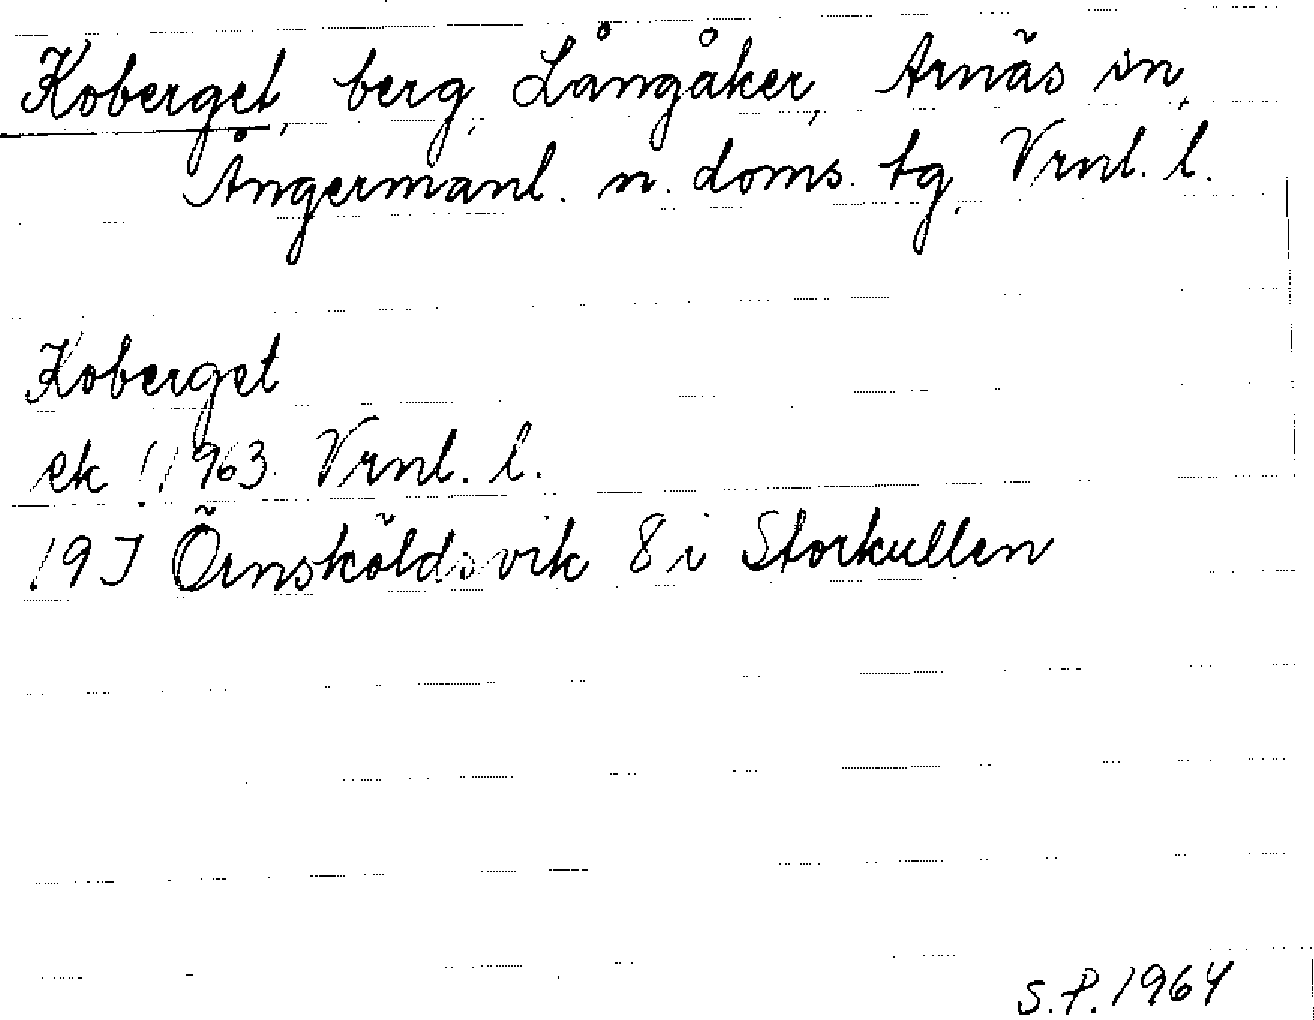 Koberget, berg, Långåker, Arnäs sn,
Ångermanl. n. doms. tg, Vrnl. l.
Koberget
ek ! 1963. Vrnl. l.
19J Örnsköldsvik 8i Storkullen
S.P. 1964